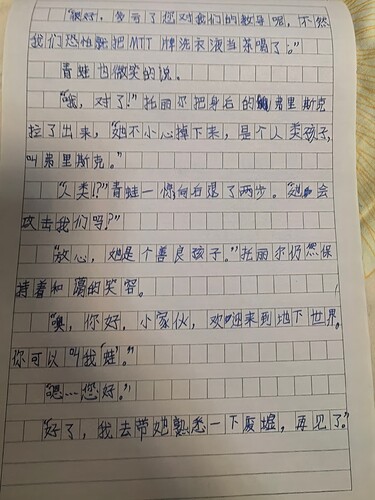 "很好，多亏了您对我们的教导呢，不然
我们恐怕就把MTT牌洗衣液当茶喝了。"
青蛙也微笑的说。
"哦，对了！"托丽尔把身后的弗里斯克
拉了出来，"她不小心掉下来，是个人类孩子，
叫弗里斯克。"
"人类！？"青蛙一惊向后退了两步。"她会
攻击我们吗？"
"放心，她是个善良孩子。"托丽尔仍然保
持着和蔼的笑容。
"噢，你好，小家伙，欢迎来到地下世界，
你可以叫我'蛙'。"
"嗯……您好。"
"好了，我去带她熟悉一下废墟，再见了。"